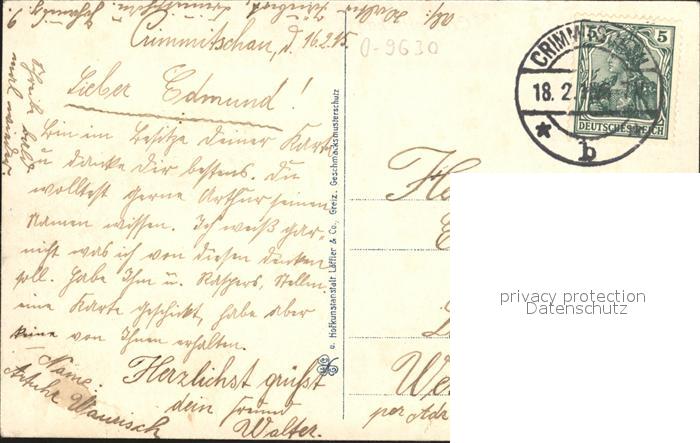 Crimmitschau, d. 16.2.15.
0-9630
Lieber Edmund!
Bin im Besitze deiner Karte
u. danke dir bestens. Du
wolltest gerne Arthur seinen
Namen wissen. Ich weiß gar-
nicht was ich von diesen denken
soll. Habe Ihm u. Kaspers, Stellm
eine Karte geschickt, habe aber
keine von Ihnen erhalten.
Name:
Arthur Waurisch
Herzlichst grüßt
dein Freund
Walter.
Schreib bald
mal wieder
Hofkunstanstalt Löffler & Co., Greiz. Geschmacksmusterschutz
CRIMMITSCHAU
18.2.
* b
5
DEUTSCHES REICH
He
We
per Adr
privacy protection
Datenschutz